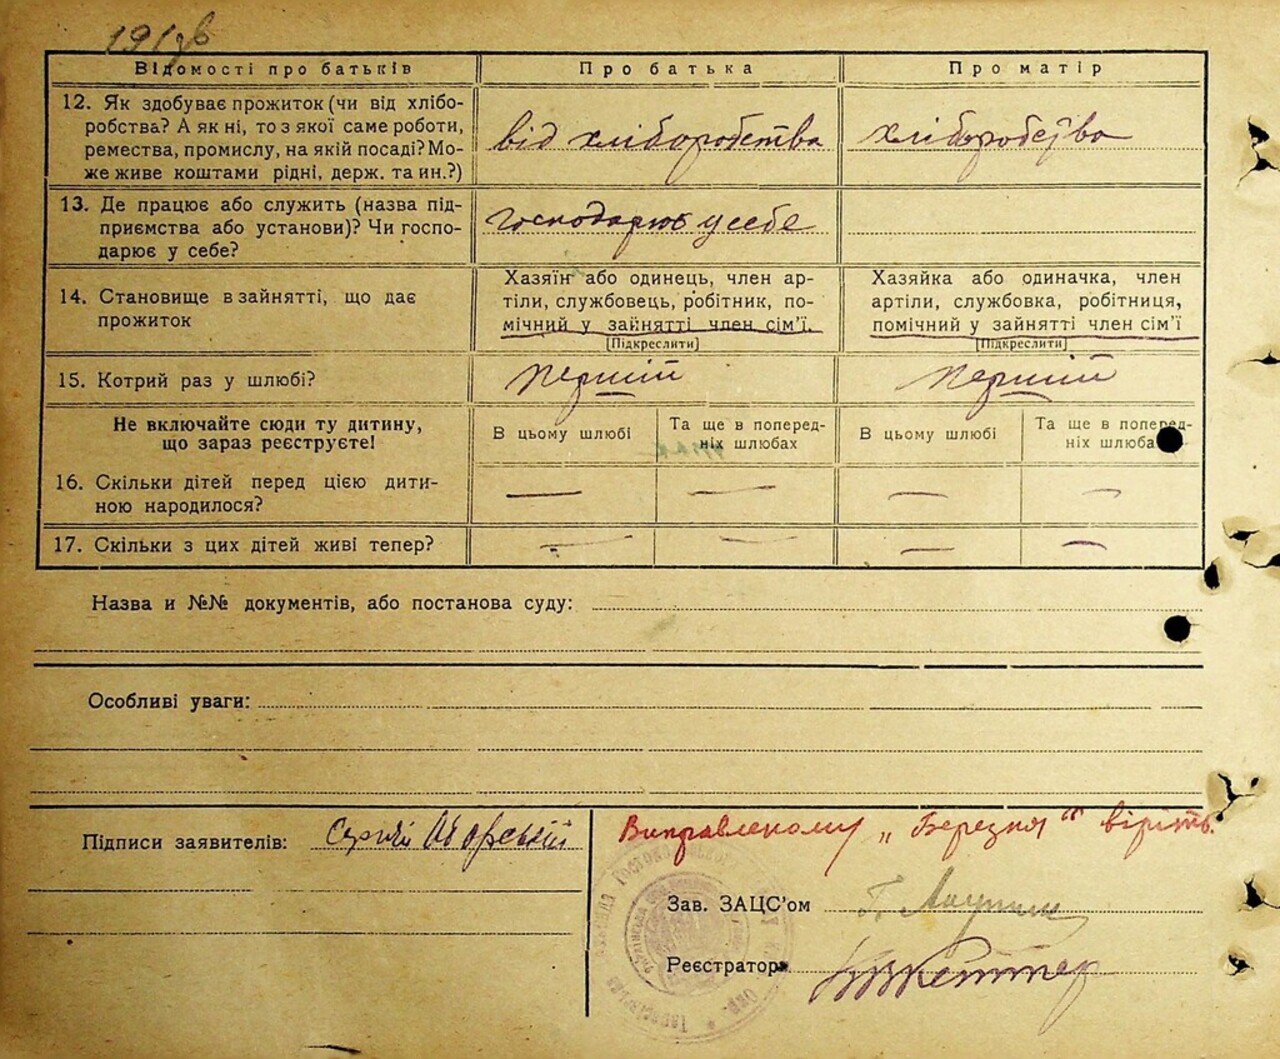 Відомості про батьків
Про батька
Про матір
12. Як здобуває прожиток (чи від хлібо-
робства? А як ні, то з якої саме роботи,
ремества, промислу, на якій посаді? Мо-
же живе коштами рідні, держ. та ин.?)
від хліборобства
хліборобство
13. Де працює або служить (назва під-
приємства або установи)? Чи госпо-
дарює у себе?
господарює у себе
14. Становище в зайнятті, що дає
прожиток
Хазяїн або одинець, член ар-
тіли, службовець, робітник, по-
мічний у зайнятті член сім'ї.
[Підкреслити]
Хазяйка або одиначка, член
артіли, службовка, робітниця,
помічний у зайнятті член сім'ї
[Підкреслити]
15. Котрий раз у шлюбі?
перший
перший
Не включайте сюди ту дитину,
що зараз реєструєте!
В цьому шлюбі
Та ще в поперед-
ніх шлюбах
В цьому шлюбі
Та ще в поперед-
ніх шлюбах
16. Скільки дітей перед цією дити-
ною народилося?
— — — —
17. Скільки з цих дітей живі тепер?
— — — —
Назва и №№ документів, або постанова суду:
Особливі уваги:
Підписи заявителів: Сергій
Виправленому „Березня“ вірить.
Зав. ЗАЦС'ом
Реєстратор